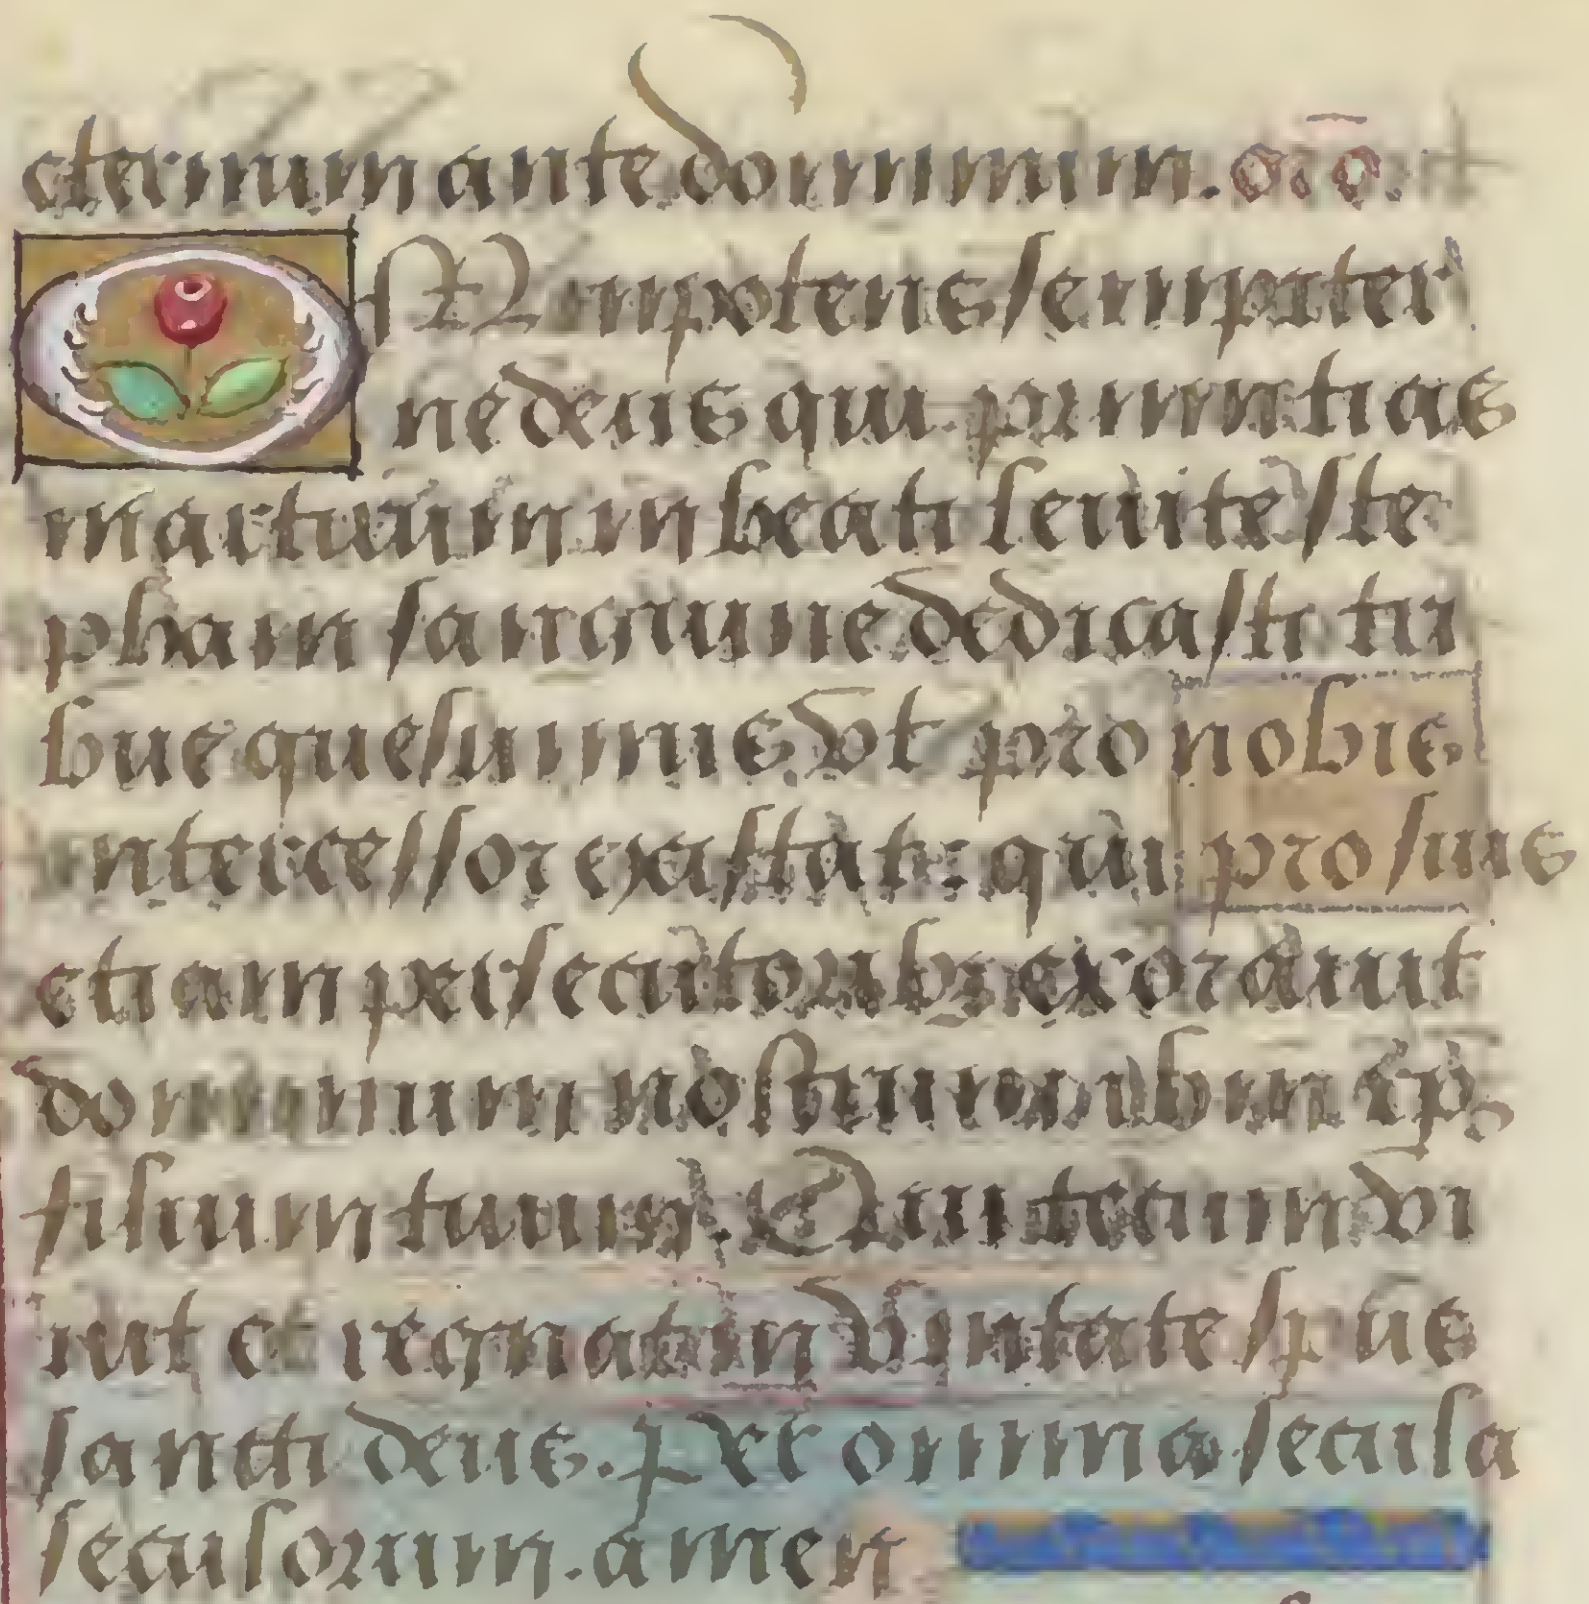 eternum ante dominum. oro.
Omnipotens sempiter
ne deus qui primitias
martirum in beati levite ste
phani sanguine dedicasti tri
bue quesumus vt pro nobis
intercessor existat: qui pro suis
etiam persecutoribus exorauit
dominum nostrum ihm xpm
filium tuum. Qui tecum vi
uit et regnat in vnitate spūs
sancti deus. Per omnia secula
seculorum. amen